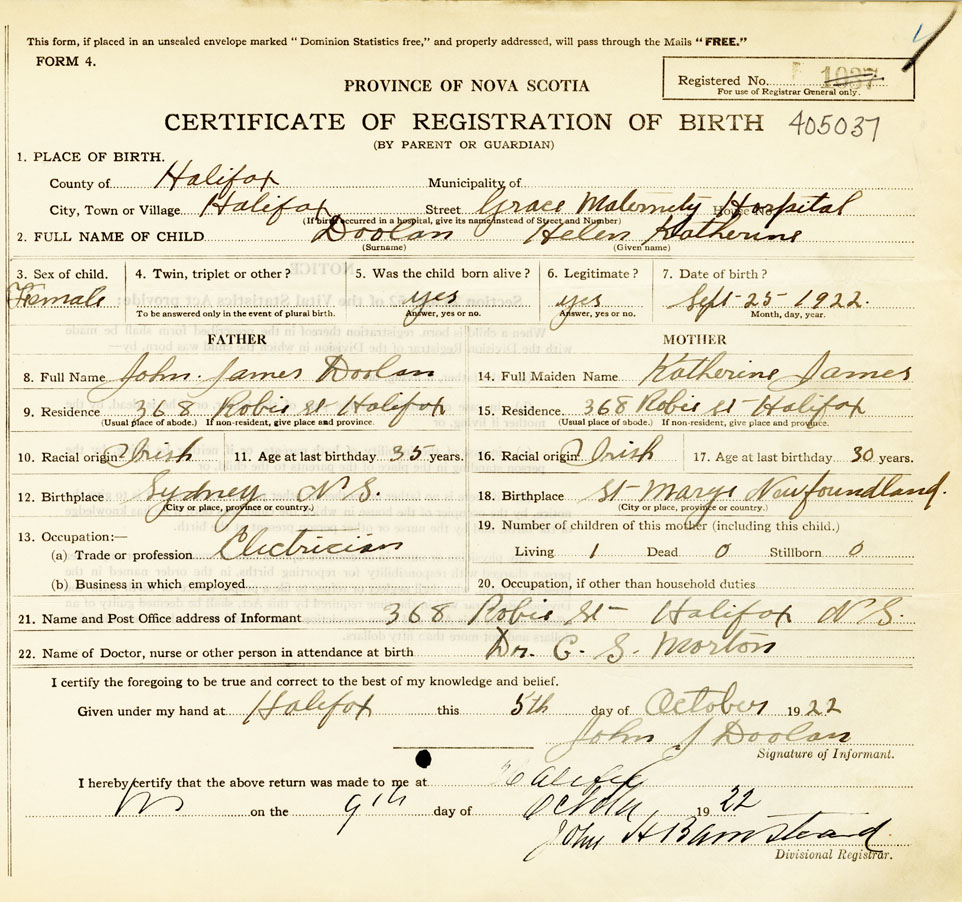 This form, if placed in an unsealed envelope marked "Dominion Statistics free," and properly addressed, will pass through the Mails "FREE."
FORM 4.
Registered No. 1037
For use of Registrar General only.
PROVINCE OF NOVA SCOTIA
CERTIFICATE OF REGISTRATION OF BIRTH 405037
(BY PARENT OR GUARDIAN)
1. PLACE OF BIRTH.
County of Halifax Municipality of
City, Town or Village Halifax Street Grace Maternity Hospital House No.
(If birth occurred in a hospital, give its name instead of Street and Number)
2. FULL NAME OF CHILD Doolan Helen Katherine
(Surname) (Given name)
3. Sex of child. 4. Twin, triplet or other? 5. Was the child born alive? 6. Legitimate? 7. Date of birth?
Female yes yes Sept-25-1922.
To be answered only in the event of plural birth. Answer, yes or no. Answer, yes or no. Month, day, year.
FATHER MOTHER
8. Full Name John James Doolan 14. Full Maiden Name Katherine James
9. Residence 368 Robie St Halifax 15. Residence 368 Robie St Halifax
(Usual place of abode.) If non-resident, give place and province. (Usual place of abode.) If non-resident, give place and province.
10. Racial origin? Irish 11. Age at last birthday 35 years. 16. Racial origin? Irish 17. Age at last birthday 30 years.
12. Birthplace Sydney N.S. 18. Birthplace St Marys Newfoundland.
(City or place, province or country.) (City or place, province or country.)
13. Occupation:— 19. Number of children of this mother (including this child.)
(a) Trade or profession Electrician Living 1 Dead 0 Stillborn 0
(b) Business in which employed 20. Occupation, if other than household duties
21. Name and Post Office address of Informant 368 Robie St Halifax N.S.
22. Name of Doctor, nurse or other person in attendance at birth Dr. C. S. Morton
I certify the foregoing to be true and correct to the best of my knowledge and belief.
Given under my hand at Halifax this 5th day of October 1922
John J Doolan
Signature of Informant.
I hereby certify that the above return was made to me at Halifax
on the 9th day of October 1922
John H Barnstead
Divisional Registrar.